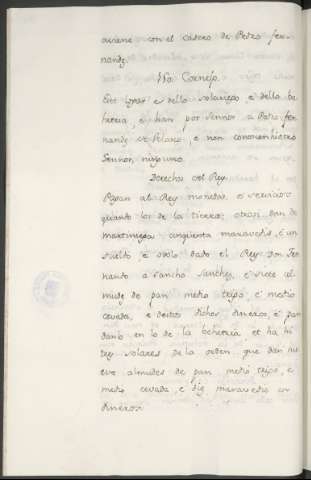 aviene con el castro de Pedro fer-
nandez.
Villa Cornejo.
Este logar es dello solariego e dello be
hetria, e han por Sennor a Pedro fer
nandez de Velasco, e non conoscen otro
Sennor ninguno.
Derechos del Rey.
Pagan al Rey monedas, e servicios
quanto los de la tierra; otrosi dan de
martiniega cinquenta maravedis, e un
sueldo e ovolo dado el Rey Don Fer
nando a Sancho Sanchez, e siete al
mudes de pan medio trigo, e medio
cevada, e destos dichos dineros, e pan
danlo en lo de la behetria et ha hi
tres solares de la orden, que dan nu
eve almudes de pan medio trigo, e
medio cevada, e diez maravedis en
dineros.